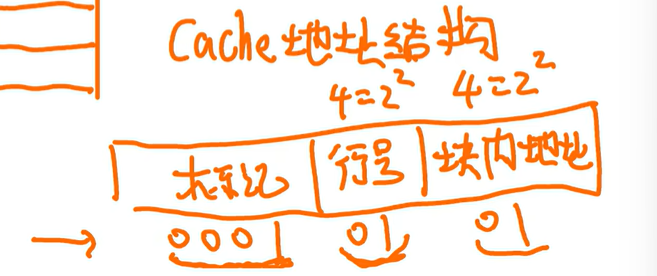 Cache地址结构
4=2² 4=2²
标记 行号 块内地址
→ 0001 01 01